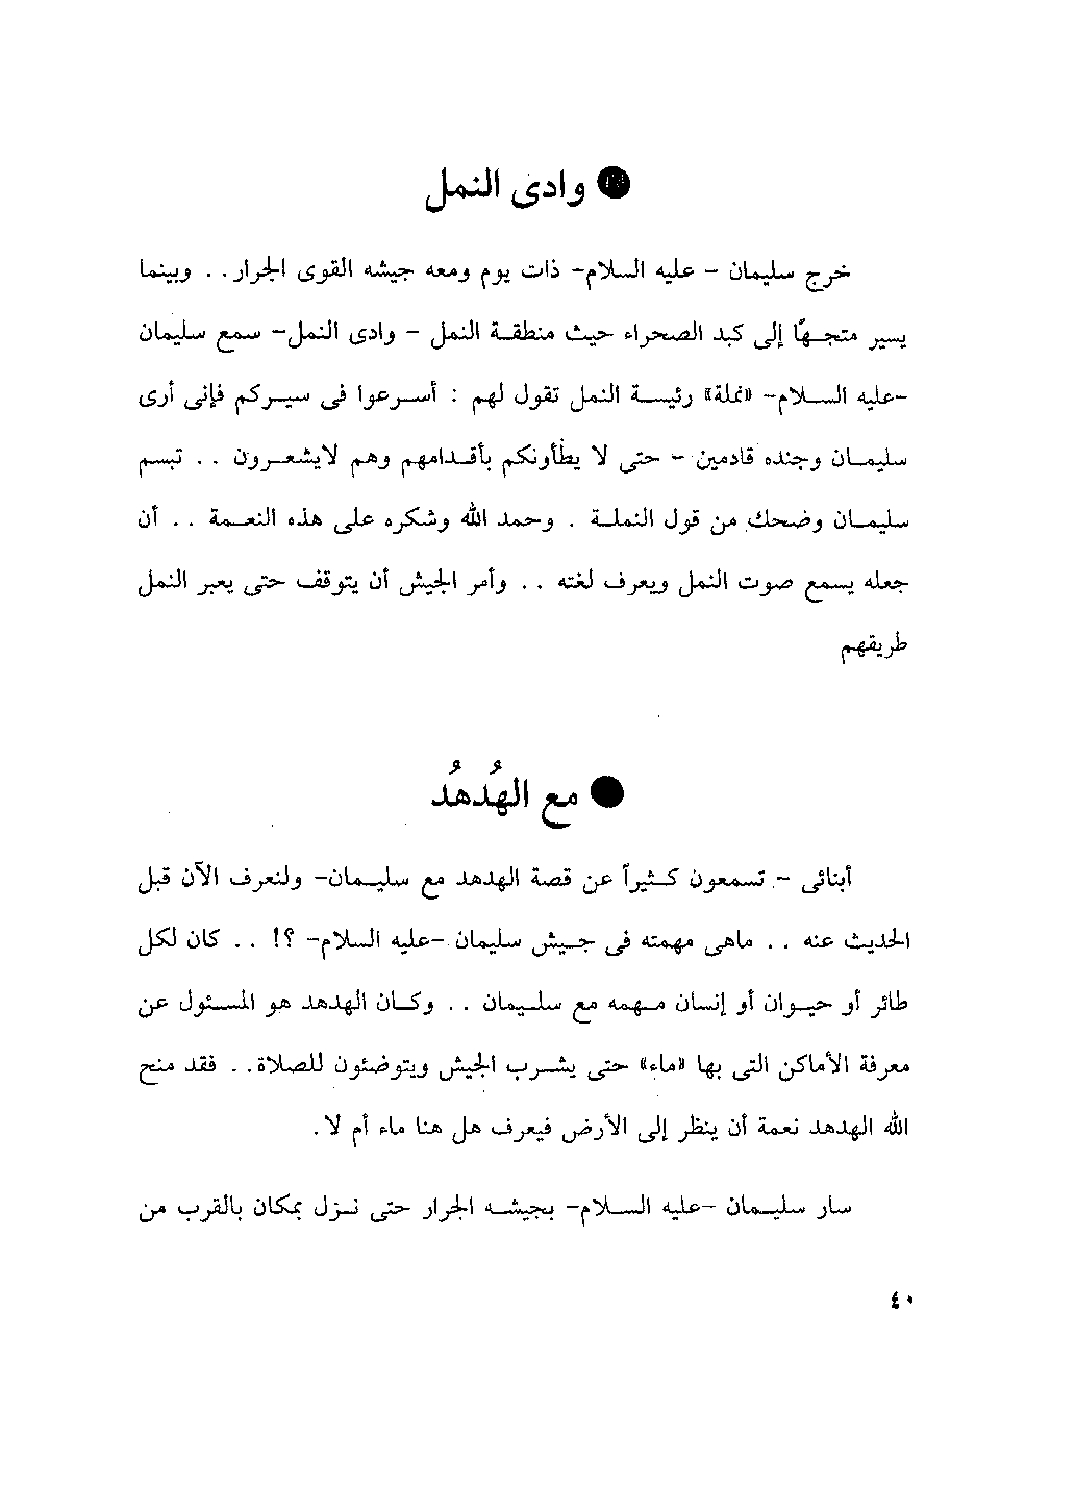 ● وادى النمل
خرج سليمان - عليه السلام- ذات يوم ومعه جيشه القوى الجرار . . وبينما
يسير متجهًا إلى كبد الصحراء حيث منطقة النمل - وادى النمل- سمع سليمان
-عليه السلام- «نملة» رئيسة النمل تقول لهم : أسرعوا فى سيركم فإنى أرى
سليمان وجنده قادمين - حتى لا يطأونكم بأقدامهم وهم لايشعرون . . تبسم
سليمان وضحك من قول النملة . وحمد الله وشكره على هذه النعمة . . أن
جعله يسمع صوت النمل ويعرف لغته . . وأمر الجيش أن يتوقف حتى يعبر النمل
طريقهم
● مع الهُدهُد
أبنائى - تسمعون كثيراً عن قصة الهدهد مع سليمان- ولنعرف الآن قبل
الحديث عنه . . ماهى مهمته فى جيش سليمان -عليه السلام- ؟! . . كان لكل
طائر أو حيوان أو إنسان مهمه مع سليمان . . وكان الهدهد هو المسئول عن
معرفة الأماكن التى بها «ماء» حتى يشرب الجيش ويتوضئون للصلاة. . فقد منح
الله الهدهد نعمة أن ينظر إلى الأرض فيعرف هل هنا ماء أم لا .
سار سليمان -عليه السلام- بجيشه الجرار حتى نزل بمكان بالقرب من
٤٠